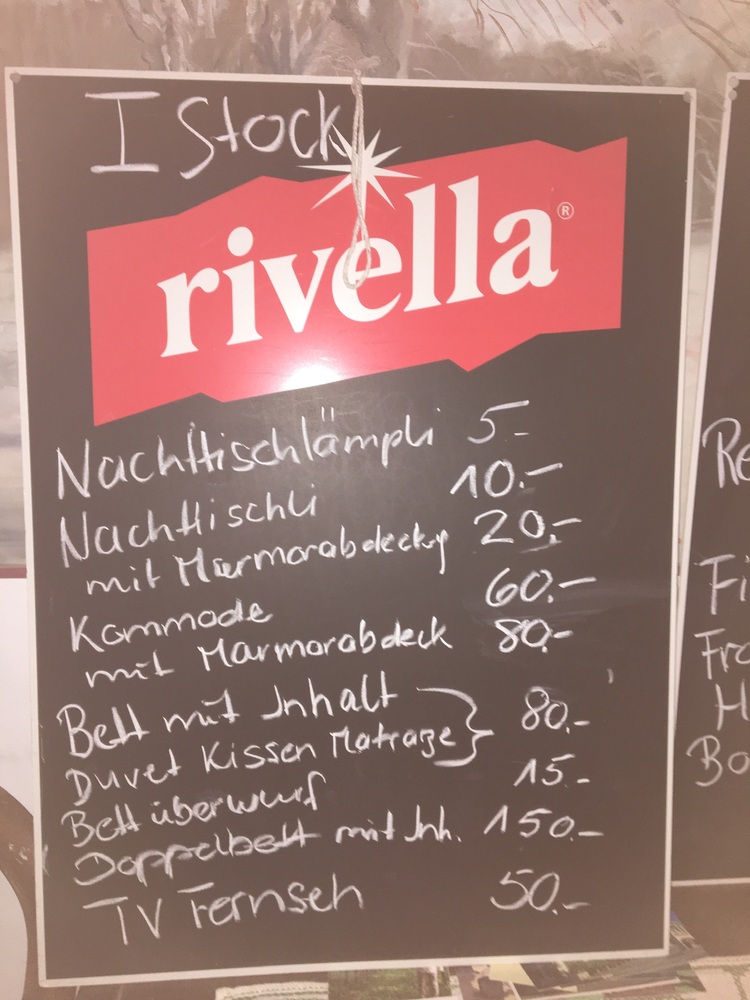 I Stock
rivella®
Nachttischlämpli 5.-
Nachttischli 10.-
mit Marmorabdeckg 20.-
Kommode 60.-
mit Marmorabdeck 80.-
Bett mit Inhalt
Duvet Kissen Matraze } 80.-
Bett überwurf 15.-
Doppelbett mit Inh. 150.-
TV Fernseh 50.-
Re
Fi
Fro
H
Bo